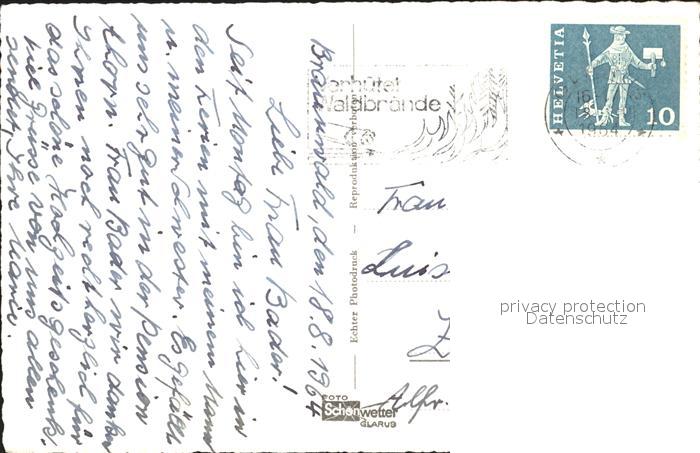 Braunwald, den 18.8.1964
Liebe Frau Bader!
Seit Montag bin ich hier in
den Ferien mit meinem Mann
u. meiner Schwester. Es gefällt
uns sehr gut in der Pension
Ahorn. Frau Bader wir danken
Ihnen noch recht herzlich für
das schöne Hochzeitsgeschenk.
Viele Grüsse von uns allen
sendet Ihre Marie.
Verhütet
Waldbrände
HELVETIA
10
1964
Echter Photodruck – Reproduktion verboten
Frau
Luis
Z
Alfr.
FOTO
Schönwetter
GLARUS
privacy protection
Datenschutz